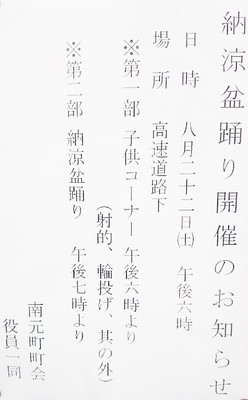 納涼盆踊り開催のお知らせ
日時 八月二十二日㈯ 午後六時
場所 高速道路下
※第一部 子供コーナー 午後六時より
(射的、輪投げ、其の外)
※第二部 納涼盆踊り 午後七時より
南元町町会
役員一同